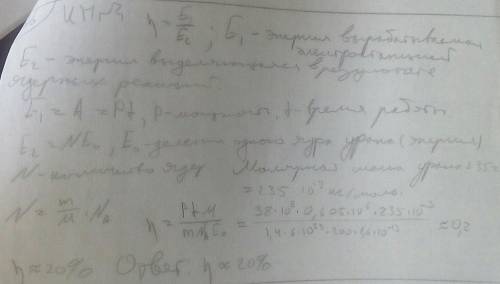 η = E₁/E₂ ; E₁ - энергия вырабатываемая
электростанцией
E₂ - энергия выделяющаяся в результате
ядерных реакций.
E₁ = A = Pt, P - мощность, t - время работы
E₂ = NE₀, E₀ - деления одного ядра урана (энергия)
N - количество ядер Молярная масса урана 235 =
= 235 · 10⁻³ кг/моль.
N = m/M · Nₐ η = PtM/mNₐE₀ = 38·10⁶·0,605·10⁶·235·10⁻³/1,4·6·10²³·200·1,6·10⁻¹³ ≈ 0,2
η ≈ 20% Ответ. η ≈ 20%